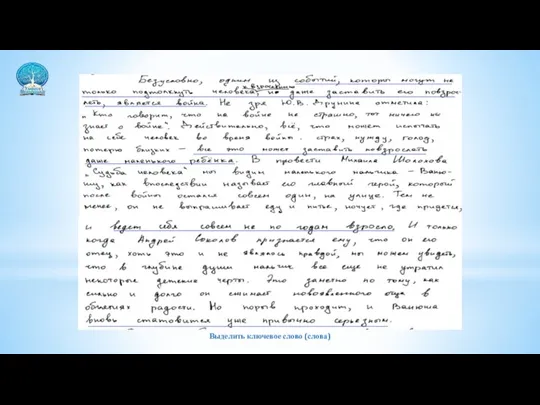 Безусловно, одним из событий, которы могут не
только подтолкнуть человека к взрослению, но даже заставить его повзрос-
леть, является война. Не зря Ю.В. Друнина отметила:
„Кто говорит, что на войне не страшно, тот ничего не
знает о войне". Действительно, всё, что может испытать
на себе человек во время войны: страх, нужду, голод,
потерю близких – все это может заставить повзрослеть
даже маленького ребёнка. В провести Михаила Шолохова
„Судьба человека" мы видим маленького мальчика – Ваню-
шу, как впоследствии называет его главный герой, который
после войны остался совсем один, на улице. Тем не
менее, он не выпрашивает еду и питье, ночует, где придется,
и ведет себя совсем не по годам взросло. И только
когда Андрей Соколов признается ему, что он его
отец, хоть это и не являлось правдой, мы можем увидеть,
что в глубине души мальчик все еще не утратил
некоторые детские черты. Это заметно по тому, как
сильно и долго он сжимает новоявленного отца в
объятиях радости. Но порыв проходит, и Ванюша
вновь становится уже привычно серьезным.
Выделить ключевое слово (слова)